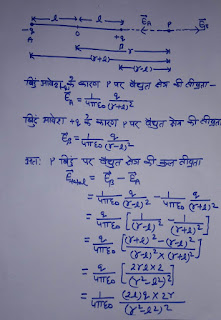 l l E⃗A E⃗B
-q +q
A O B P
r
(r+l)
(r-l)
बिंदु आवेश -q के कारण P पर वैद्युत क्षेत्र की तीव्रता -
E⃗A = 1/4πε0 q/(r+l)²
बिंदु आवेश +q के कारण P पर वैद्युत क्षेत्र की तीव्रता
E⃗B = 1/4πε0 q/(r-l)²
अतः P बिंदु पर वैद्युत क्षेत्र की कुल तीव्रता
E⃗total = E⃗B - E⃗A
= 1/4πε0 q/(r-l)² - 1/4πε0 q/(r+l)²
= q/4πε0 [1/(r-l)² - 1/(r+l)²]
= q/4πε0 [(r+l)² - (r-l)²/(r-l)² × (r+l)²]
= q/4πε0 [2rl×2/(r²-l²)²]
= 1/4πε0 (2l)q × 2r/(r²-l²)²